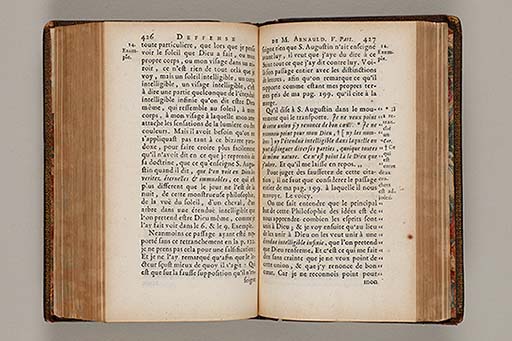 426 DEFFENSE
14. Exem-
ple.
toute particuliere, que lors que je pense
voir le soleil que Dieu a fait, ou mon
propre corps, ou mon visage dans un mi-
roir, ce n'est rien de tout cela que je
voy, mais un soleil intelligible, un corps
intelligible, un visage intelligible, c'est
à dire une partie quelconque de l'étenduë
intelligible infinie qu'on dit estre Dieu
même, qui ressemble au soleil, à mon
corps, à mon visage à laquelle mon ame
attache les sensations de la lumiere ou des
couleurs. Mais il avoit besoin qu'on ne
s'appliquast pas tant à ce bizarre para-
doxe, pour faire croire plus facilement
qu'il n'avoit dit en ce que je reprenois de
sa doctrine, que ce qu'enseigne S. Augu-
stin quand il dit, que l'on voit en Dieu les
veritez éternelles & immuables, ce qui est
plus different que le jour ne l'est de la
nuit, de cette monstrueuse philosophie,
de la veuë du soleil, d'un cheval, d'un
arbre dans une étenduë intelligible que
l'on pretend estre Dieu même, comme je
l'ay fait voir dans le 6. & le 9. Exemple.
Neanmoins ce passage ayant esté rap-
porté sans ce retranchement en la p. 122.
je ne prens pas cela pour une falsification.
Et je ne l'ay remarqué qu'afin que le le-
cteur sçust mieux de quoy il s'agit: Qui
est que sur la fausse supposition qu'il n'en-
seigne
DE M. ARNAULD. V. Part. 427
14.
Exem-
ple.
seigne rien que S. Augustin n'ait enseigné
avant luy, il veut que j'aye du dire à ce
Saint tout ce que j'ay dit contre luy. Voi-
la son passage entier avec les distinctions
de lettres, afin qu'on remarque ce qu'il
rapporte comme estant mes propres ter-
mes pris de ma pag. 199. qu'il cite à la
marge.
Qu'il dise à S. Augustin dans le mou-
vement qui le transporte. Je ne veux point
de cette union & j'y renonce de bon cœur: * Je ne
reconnois point pour mon Dieu,
ny l'étenduë intelligible dans laquelle on
peut distinguer diverses parties, quoique toutes
de même nature. Ce n'est point là le Dieu que
j'adore. Et qu'il me laisse en repos.
Pour juger des faussetez de cette cita-
tion, il ne faut que considerer le passage
entier de ma pag. 199. à laquelle il nous
renvoye. Le voicy.
On me fait entendre que le principal
but de cette Philosophie des idées est de
nous apprendre combien les esprits sont
unis à Dieu; & je voy ensuite qu'au lieu
de les unir à Dieu on les veut unir à une
étenduë intelligible infinie, que l'on pretend
que Dieu renferme. Et c'est ce qui me fait
dire sans crainte que je ne veux point de
cette union, & que j'y renonce de bon
cœur. Car je ne reconnois point pour
mon